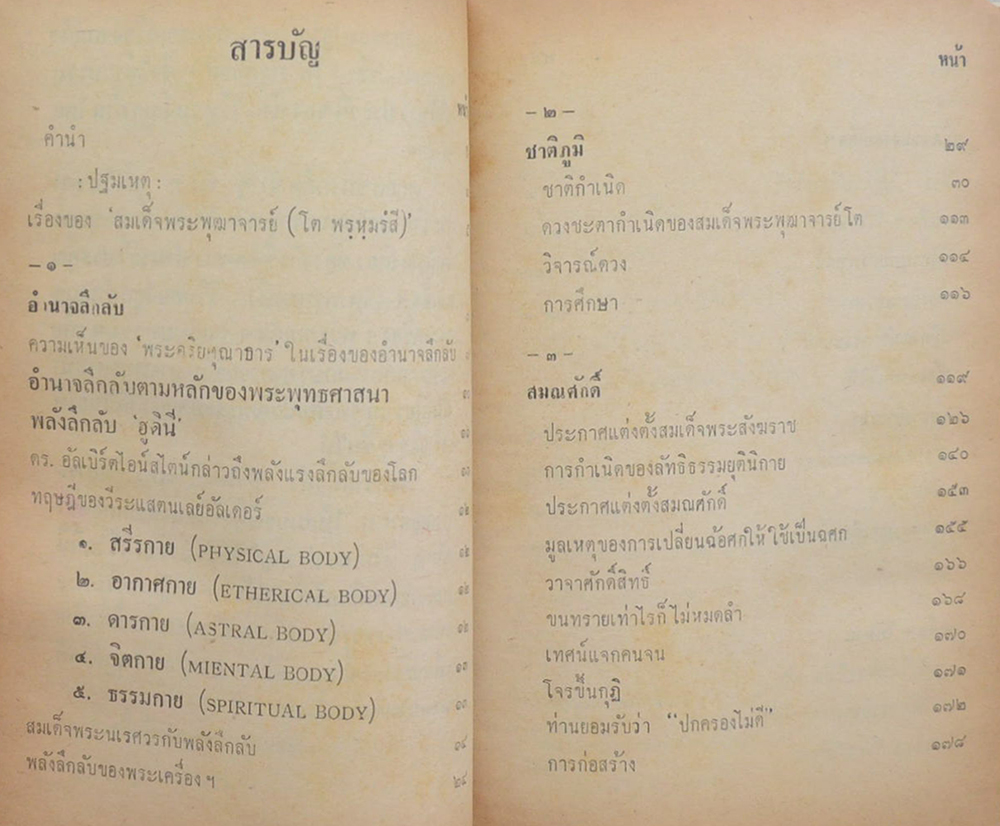 สารบัญ
คำนำ
: ปฐมเหตุ :
เรื่องของ 'สมเด็จพระพุฒาจารย์ (โต พฺรหฺมรํสี)'
– ๑ –
อำนาจลึกลับ
ความเห็นของ 'พระตริยคุณาธาร' ในเรื่องของอำนาจลึกลับ
อำนาจลึกลับตามหลักของพระพุทธศาสนา
พลังลึกลับ 'ฮูดินี'
ดร. อัลเบิร์ตไอน์สไตน์กล่าวถึงพลังแรงลึกลับของโลก
ทฤษฎีของวีระแสตนเลย์อัลเดอร์ ๑๒
๑. สรีรกาย (PHYSICAL BODY) ๑๒
๒. อากาศกาย (ETHERICAL BODY) ๑๒
๓. ดารกาย (ASTRAL BODY) ๑๒
๔. จิตกาย (MIENTAL BODY) ๑๓
๕. ธรรมกาย (SPIRITUAL BODY) ๑๓
สมเด็จพระนเรศวรกับพลังลึกลับ ๑๔
พลังลึกลับของพระเครื่อง ฯ ๒๔
หน้า
– ๒ –
ชาติภูมิ ๒๙
ชาติกำเนิด ๓๐
ดวงชะตากำเนิดของสมเด็จพระพุฒาจารย์ โต ๑๑๓
วิจารณ์ดวง ๑๑๔
การศึกษา ๑๑๖
– ๓ –
สมณศักดิ์ ๑๑๙
ประกาศแต่งตั้งสมเด็จพระสังฆราช ๑๒๖
การกำเนิดของลัทธิธรรมยุตินิกาย ๑๔๐
ประกาศแต่งตั้งสมณศักดิ์ ๑๕๓
มูลเหตุของการเปลี่ยนฉ้อศกให้ใช้เป็นฉศก ๑๕๕
วาจาศักดิ์สิทธิ์ ๑๖๖
ขนทรายเท่าไรก็ไม่หมดลำ ๑๖๘
เทศน์แจกคนจน ๑๗๐
โจรขึ้นกุฏิ ๑๗๑
ท่านยอมรับว่า "ปกครองไม่ดี" ๑๗๒
การก่อสร้าง ๑๗๘